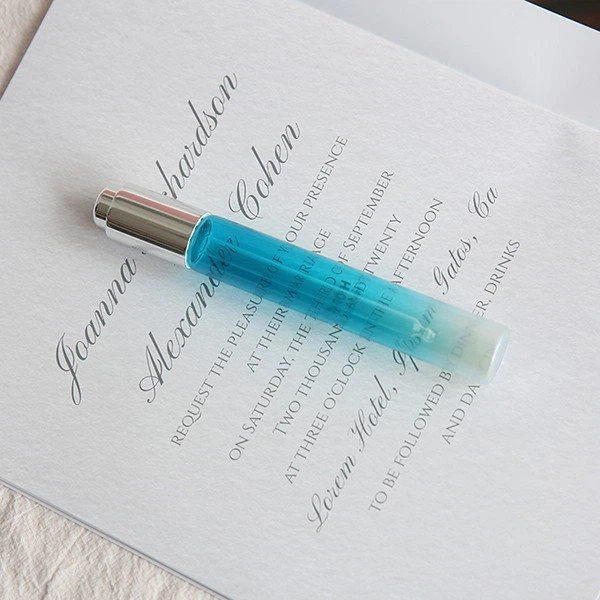 Joanna Richardson
Alexander Cohen
REQUEST THE PLEASURE OF YOUR PRESENCE
AT THEIR MARRIAGE
ON SATURDAY, THE THIRD OF SEPTEMBER
TWO THOUSAND AND TWENTY
AT THREE O'CLOCK IN THE AFTERNOON
Lorem Hotel, Ipsum Gatos, Ca
TO BE FOLLOWED BY DINNER, DRINKS
AND